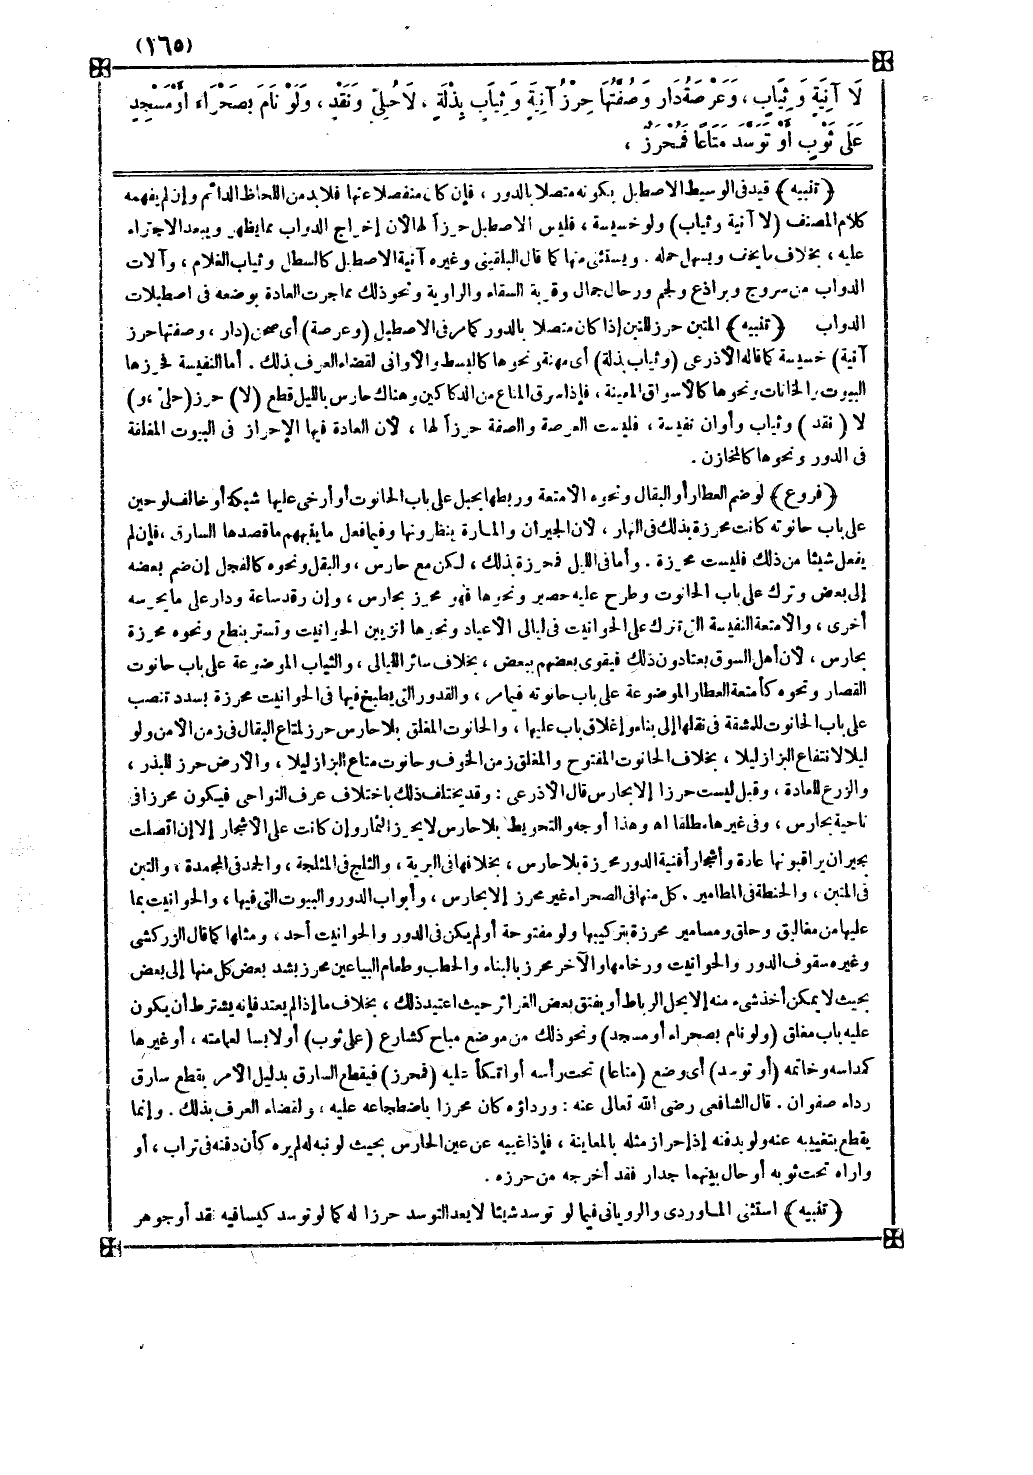 (١٦٥)
لَا آنِيَةٍ وَ ثِيَابٍ ، وَعَرْصَةُ دَارٍ وَصُفَّتُهَا حِرْزُ آنِيَةٍ وَ ثِيَابِ بِذْلَةٍ ، لَا حُلِيٍّ وَنَقْدٍ ، وَلَوْ نَامَ بِصَحْرَاءَ أَوْ مَسْجِدٍ
عَلَى ثَوْبٍ أَوْ تَوَسَّدَ مَتَاعًا فَمُحْرَزٌ ،
(تنبيه) قيد فى الوسيط الاصطبل بكونه متصلا بالدور ، فإن كان منفصلا عنها فلابد من اللحاظ الدائم وإن لم يفهمه
كلام المصنف (لا آنية وثياب) ولو خسيسة ، فليس الاصطبل حرزاً لها لأن إخراج الدواب مما يظهر ويبعد الاجتراء
عليه ، بخلاف ما يخف ويسهل حمله . ويستثنى منها كما قال البلقينى وغيره آنية الاصطبل كالسطل وثياب الغلام ، وآلات
الدواب من سروج وبراذع ولجم ورحال جمال وقربة السقاء والراوية ونحو ذلك مما جرت العادة بوضعه فى اصطبلات
الدواب (تنبيه) المتبن حرز للتبن إذا كان متصلا بالدور كما مر فى الاصطبل (وعرصة) أى صحن (دار ، وصفتها حرز
آنية) خسيسة كما قاله الأذرعى (وثياب بذلة) أى مهنة ونحوها كالبسط والأوانى لقضاء العرف بذلك . أما النفيسة فحرزها
البيوت والخانات ونحوها كالأسواق المنيعة ، فإذا سرق المتاع من الدكاكين وهناك حارس بالليل قطع (لا) حرز (حلىّ ،و)
لا (نقد) وثياب وأوان نفيسة ، فليست العرصة والصفة حرزاً لها ، لأن العادة فيها الإحراز فى البيوت المغلقة
فى الدور ونحوها كالمخازن .
(فروع) لو ضم العطار أو البقال ونحوه الأمتعة وربطها بحبل على باب الحانوت أو أرخى عليها شبكة أو خالف لوحين
على باب حانوته كانت محرزة بذلك فى النهار ، لأن الجيران والمارة ينظرونها وفيما فعل ما ينبههم ما قصدها السارق ،فإن لم
يفعل شيئا من ذلك فليست محرزة . وأما فى الليل فمحرزة بذلك ، لكن مع حارس ، والبقل ونحوه كالفجل إن ضم بعضه
إلى بعض وترك على باب الحانوت وطرح عليه حصير ونحوها فهو محرز بحارس ، وإن رقد ساعة ودار على ما يحرسه
أخرى ، والأمتعة النفيسة التى تترك على الحوانيت فى ليالى الأعياد ونحوها لتزيين الحوانيت وتستر بنطع ونحوه محرزة
بحارس ، لأن أهل السوق يعتادون ذلك فيقوى بعضهم ببعض ، بخلاف سائر الليالى ، والثياب الموضوعة على باب حانوت
القصار ونحوه كأمتعة العطار الموضوعة على باب حانوته فيما مر ، والقدور التى يطبخ فيها فى الحوانيت محرزة بسدد تنصب
على باب الحانوت للمشقة فى نقلها إلى بناء وإغلاق باب عليها ، والحانوت المغلق بلا حارس حرز لمتاع البقال فى زمن الأمن ولو
ليلا لا لمتاع البزاز ليلا ، بخلاف الحانوت المفتوح والمغلق زمن الخوف وحانوت متاع البزاز ليلا ، والأرض حرز للبذر ،
والزرع للعادة ، وقيل ليست حرزا إلا بحارس قال الأذرعى : وقد يختلف ذلك باختلاف عرف النواحى فيكون محرزا فى
ناحية بحارس ، وفى غيرها مطلقا اه وهذا أوجه والتحويط بلا حارس لا يحرز الثمار وإن كانت على الأشجار إلا إن اتصلت
بجيران يراقبونها عادة وأشجار أفنية الدور محرزة بلا حارس ، بخلافها فى البرية ، والثلج فى المثلجة ، والجمد فى المجمدة ، والتبن
فى المتبن ، والحنطة فى المطامير . كل منها فى الصحراء غير محرز إلا بحارس ، وأبواب الدور والبيوت التى فيها ، والحوانيت بما
عليها من مغاليق وحلق ومسامير محرزة بتركيبها ولو مفتوحة أو لم يكن فى الدور والحوانيت أحد ، ومثلها كما قال الزركشى
وغيره سقوف الدور والحوانيت ورخامها والآخر محرز بالبناء والحطب وطعام البياعين محرز بشد بعض كل منها إلى بعض
بحيث لا يمكن أخذ شىء منه إلا بحل الرباط أو بفتق بعض الغرائر حيث اعتيد ذلك ، بخلاف ما إذا لم يعتد فإنه يشترط أن يكون
عليه باب مغلق (ولو نام بصحراء أو مسجد) ونحو ذلك من موضع مباح كشارع (على ثوب) أو لابسا لعمامته ، أو غيرها
كمداسه وخاتمه (أو توسد) أى وضع (متاعا) تحت رأسه أو اتكأ عليه (فمحرز) فيقطع السارق بدليل الأمر بقطع سارق
رداء صفوان . قال الشافعى رضى الله تعالى عنه : ورداؤه كان محرزا باضطجاعه عليه ، ولقضاء العرف بذلك . وإنما
يقطع بتغييبه عنه ولو بدفنه إذ إحراز مثله بالمعاينة ، فإذا غيبه عن عين الحارس بحيث لو نبه له لم يره كأن دفنه فى تراب ، أو
واراه تحت ثوبه أو حال بينهما جدار فقد أخرجه من حرزه .
(تنبيه) استثنى الماوردى والرويانى فيما لو توسد شيئا لا يعد التوسد حرزا له كما لو توسد كيسا فيه نقد أو جوهر